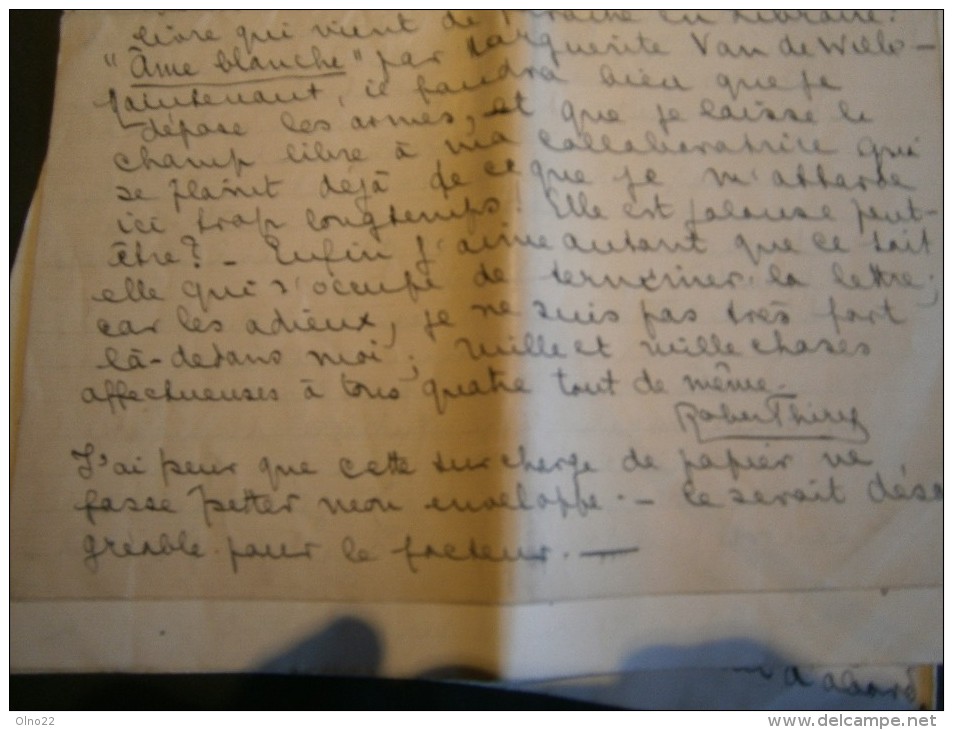 livre qui vient de paraître en librairie:
"Âme blanche" par Marguerite Van de Wiele -
Maintenant, il faudra bien que je
dépose les armes, et que je laisse le
champ libre à ma collaboratrice qui
se plaint déjà de ce que je m'attarde
ici trop longtemps! Elle est jalouse peut-
être? - Enfin j'aime autant que ce soit
elle qui s'occupe de terminer la lettre;
car les adieux, je ne suis pas très fort
là-dedans moi; mille et mille choses
affectueuses à tous quatre tout de même -
Robert
J'ai peur que cette surcharge de papier ne
fasse petter mon enveloppe. - Ce serait désa
gréable pour le facteur. -
d'abord
Olno22
www.delcampe.net